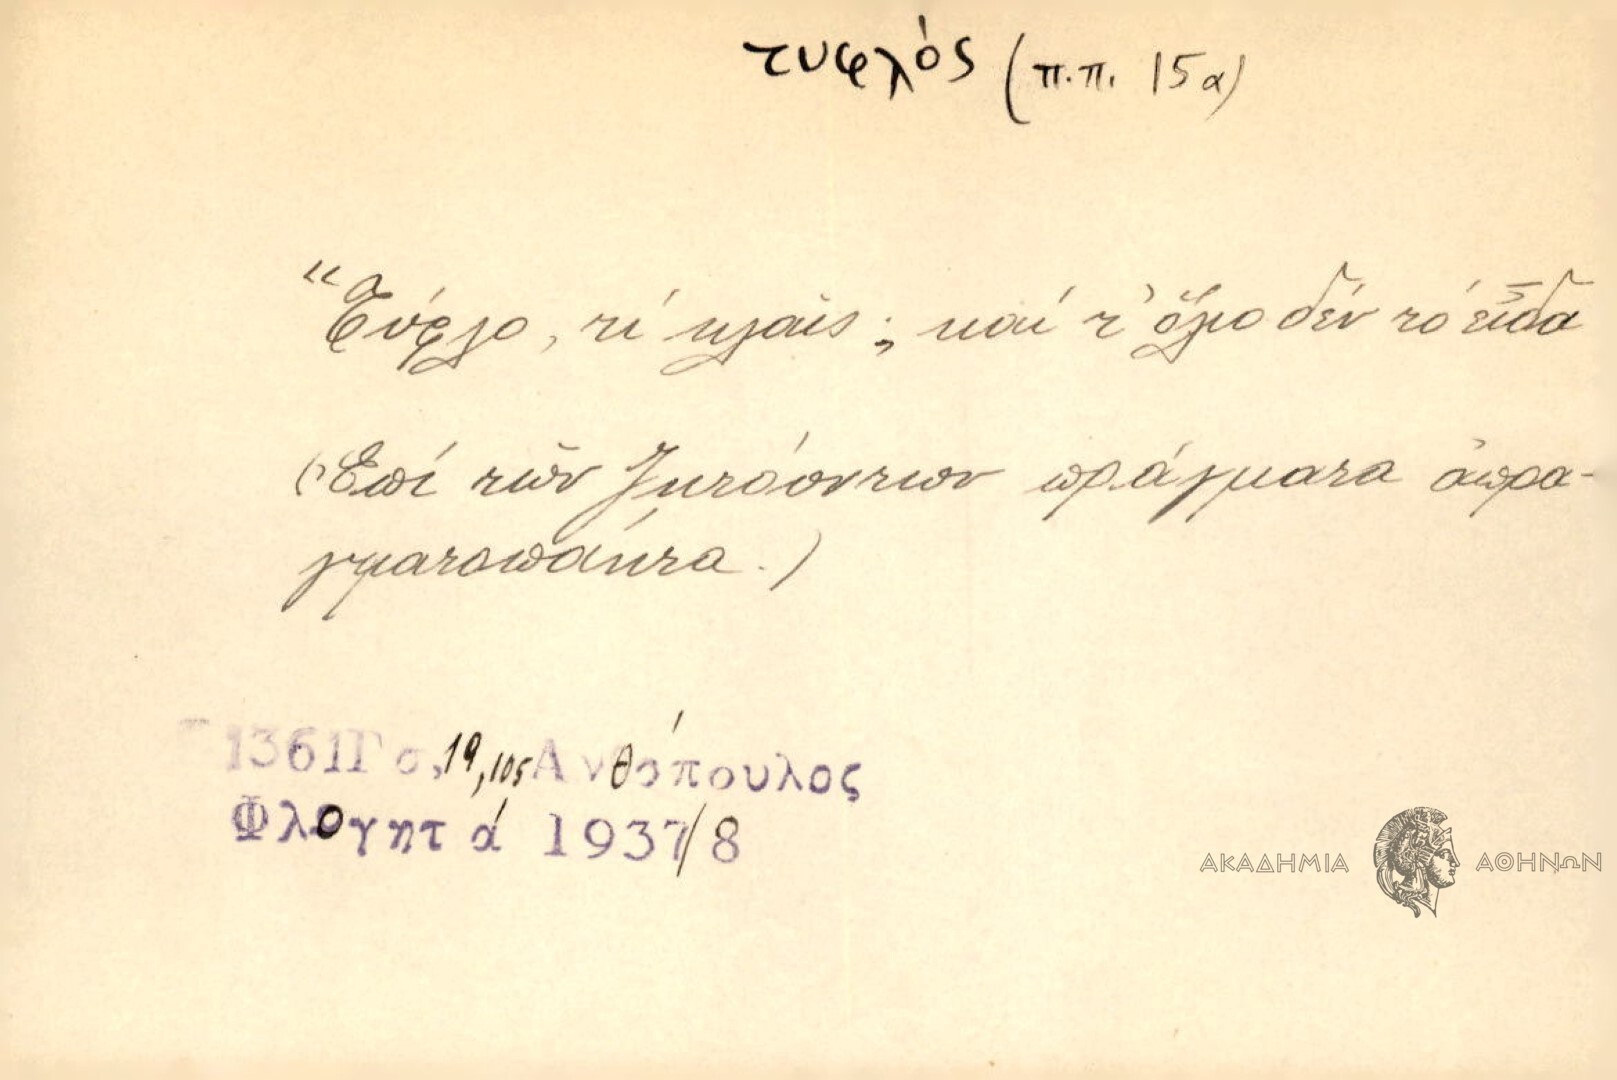 τυφλός (π.π. 15α)
"Τύφλο, τί κλαίς; καί τ' ὅλο δέν τό εἶδα
(Ἐπί τῶν ζητούντων πράγματα ἀπρα-
γματοποίητα.)
1361Γ σ, 19,105 Ανθόπουλος
Φλογητά 1937/8
ΑΚΑΔΗΜΙΑ ΑΘΗΝΩΝ